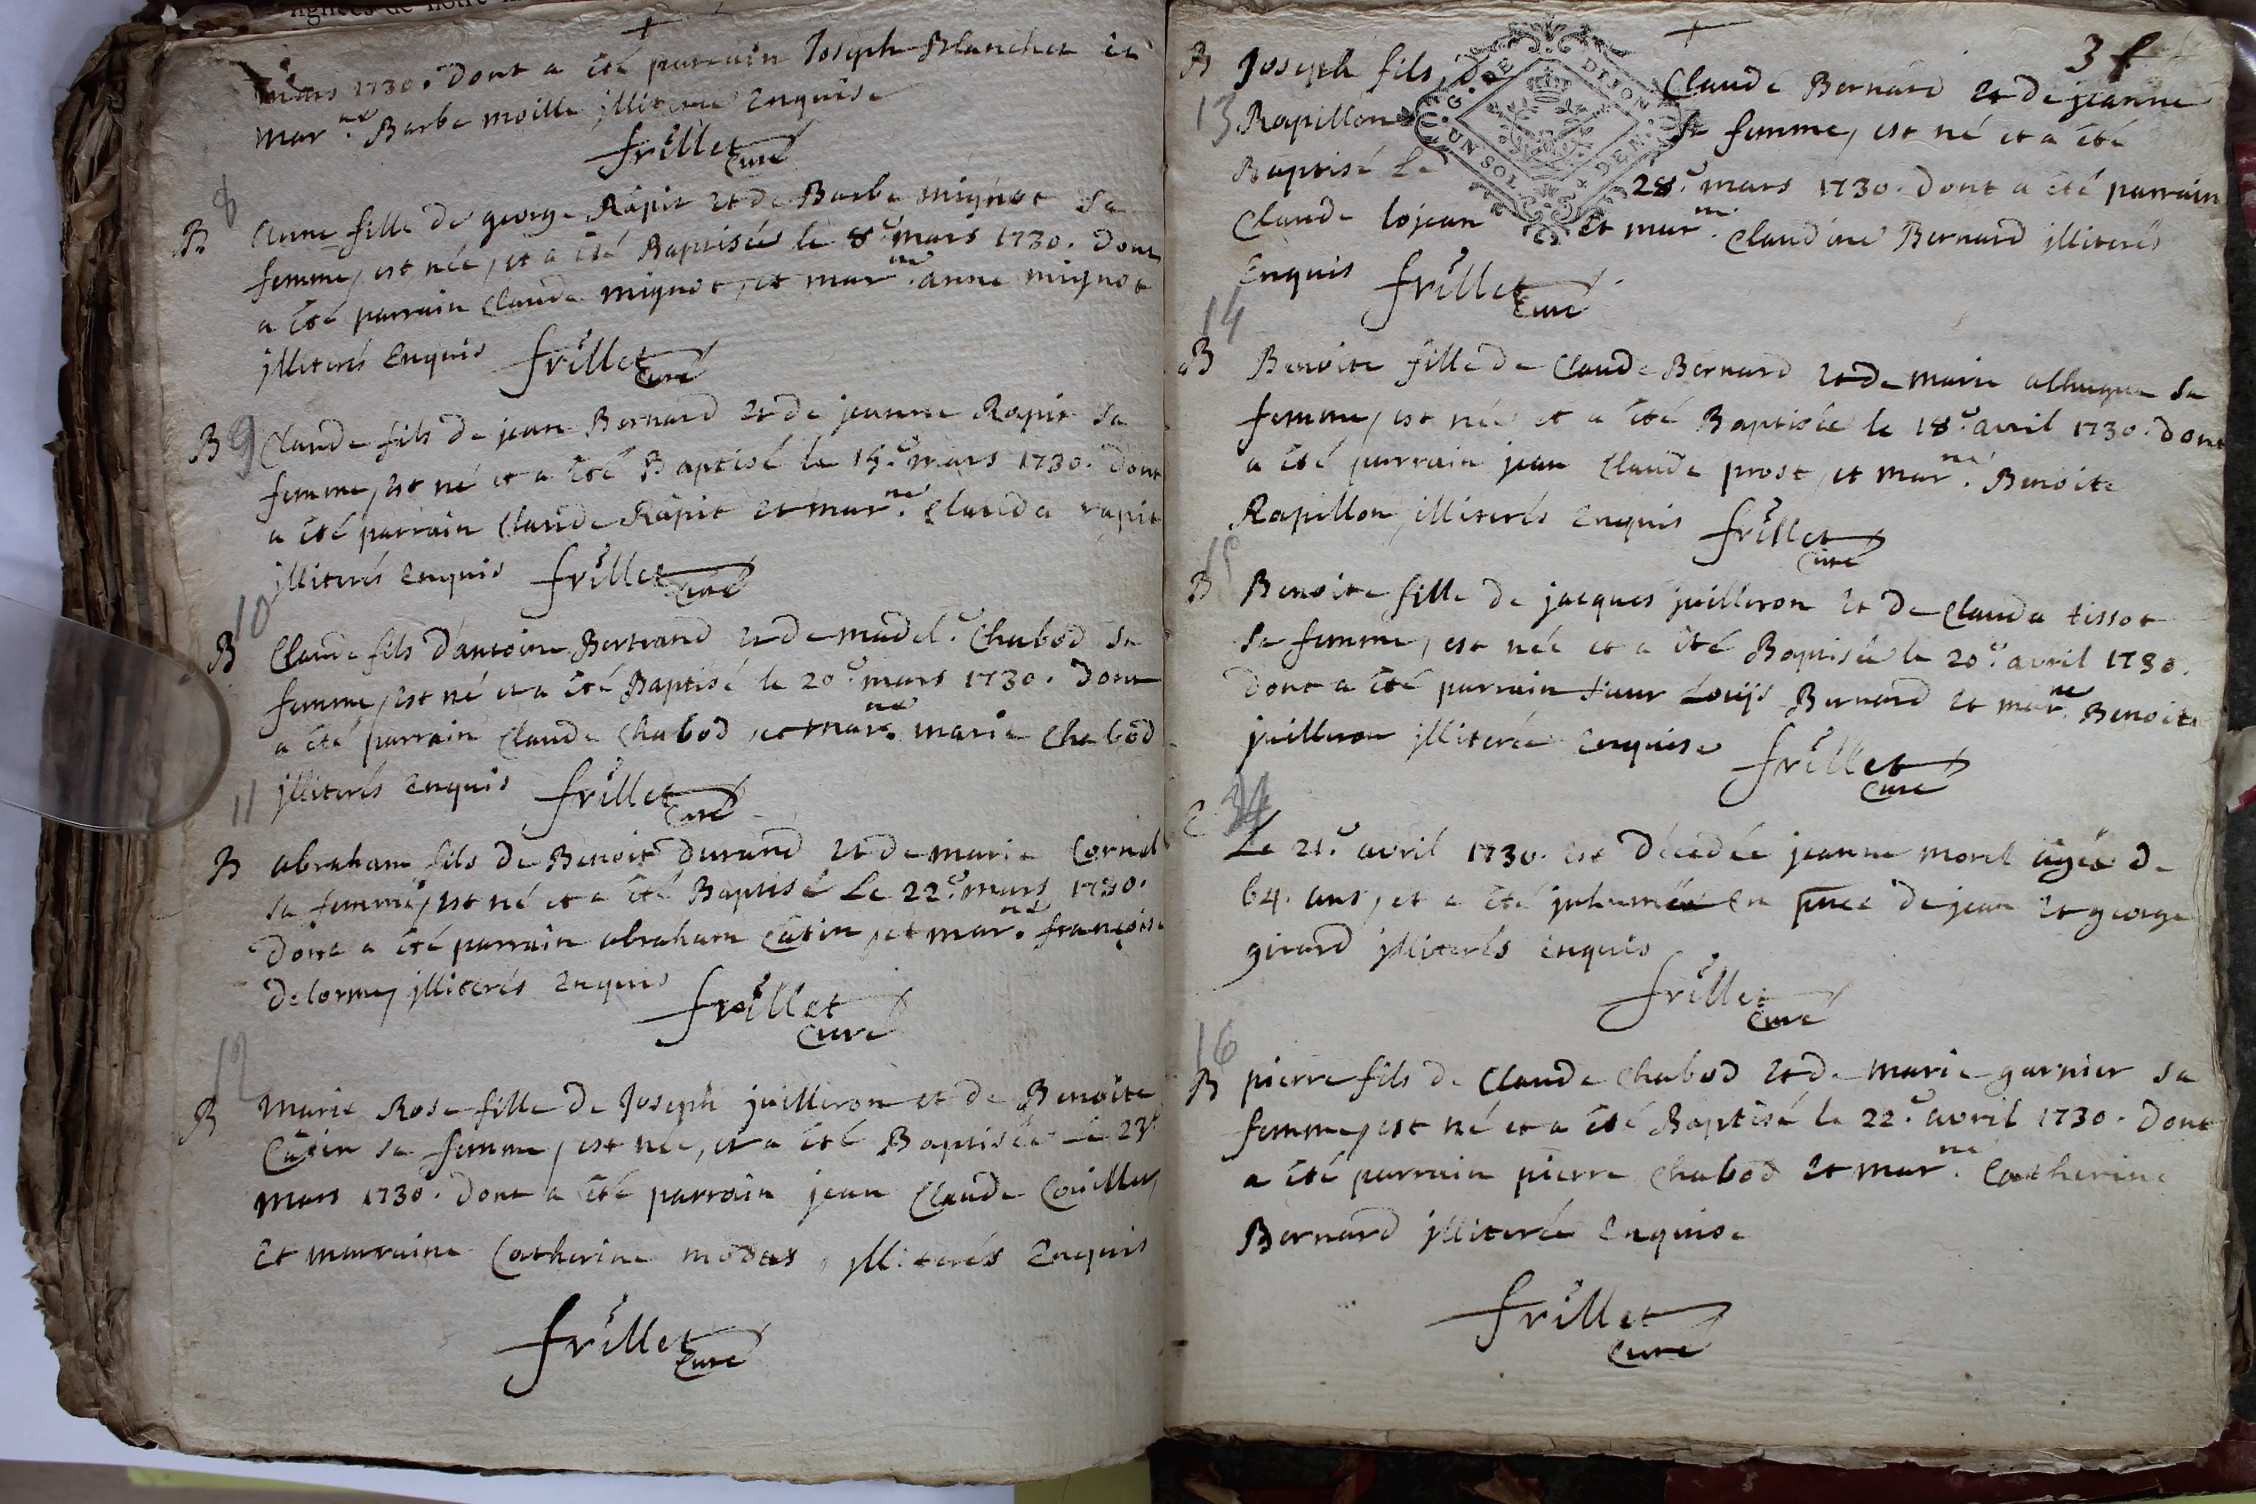 +
mars 1730. Dont a été parrain Joseph Blanchet et
mar.ne Barbe moille jlliterée Enquise
frillet
Curé
8
B Anne fille de george Rapit et de Barbe mignot sa
femme, est née, et a été Baptisée le 8.e mars 1730. Dont
a été parrain Claude mignot, et mar.ne anne mignot
jlliterés Enquis frillet
Curé
9
B Claude fils de jean Bernard et de jeanne Rapit sa
femme, est né et a été Baptisé le 15.e mars 1730. Dont
a été parrain Claude Rapit et mar.ne Clauda rapit
jlliterés Enquis frillet
Curé
10
B Claude fils d'antoine Bertrand et de madel.e Chabod sa
femme, est né et a été Baptisé le 20.e mars 1730. Dont
a été parrain Claude Chabod, et mar.ne marie Chabod
jlliterés Enquis frillet
Curé
11
B abraham fils de Benoit durand et de marie Cornel
sa femme, est né et a été Baptisé Le 22.e mars 1730.
Dont a été parrain abraham Catin, et mar.ne françoise
Delorme, jlliterés Enquis
frillet
Curé
12
B Marie Rose fille de Joseph juilleron et de Benoite
Catin sa femme, est née, et a été Baptisée le 23.e
mars 1730. Dont a été parrain jean Claude Couiller
Et marraine Catherine modas, jlliterés Enquis
frillet
Curé
+
3
G. DE DIJON
UN SOL 4 DEN
13
B Joseph fils de Claude Bernard et de jeanne
Rapillon sa femme, est né et a été
Baptisé Le 28.e mars 1730. Dont a été parrain
Claude lojean Et mar.ne Claudine Bernard jlliterés
Enquis frillet
Curé
14
B Benoite fille de Claude Bernard et de marie sa
femme, est née et a été Baptisée le 18.e avril 1730. Dont
a été parrain jean Claude prost, et mar.ne Benoite
Rapillon, illiterés Enquis frillet
Curé
15
B Benoite fille de jacques juilleron et de Clauda tissot
sa femme, est née et a été Baptisée le 20.e avril 1730.
Dont a été parrain sieur Louijs Bernard et mar.ne Benoite
juilleron jlliterée Enquise frillet
Curé
Le 21.e avril 1730. Est décedée jeanne morel agée de
64. ans, et a été jnhumée En pnce de jean et george
girard jlliterés Enquis
frillet
Curé
16
B pierre fils de Claude Chabod et de marie garnier sa
femme, est né et a été Baptisé le 22.e avril 1730. Dont
a été parrain pierre Chabod et mar.ne Catherine
Bernard jlliterée Enquise
frillet
Curé